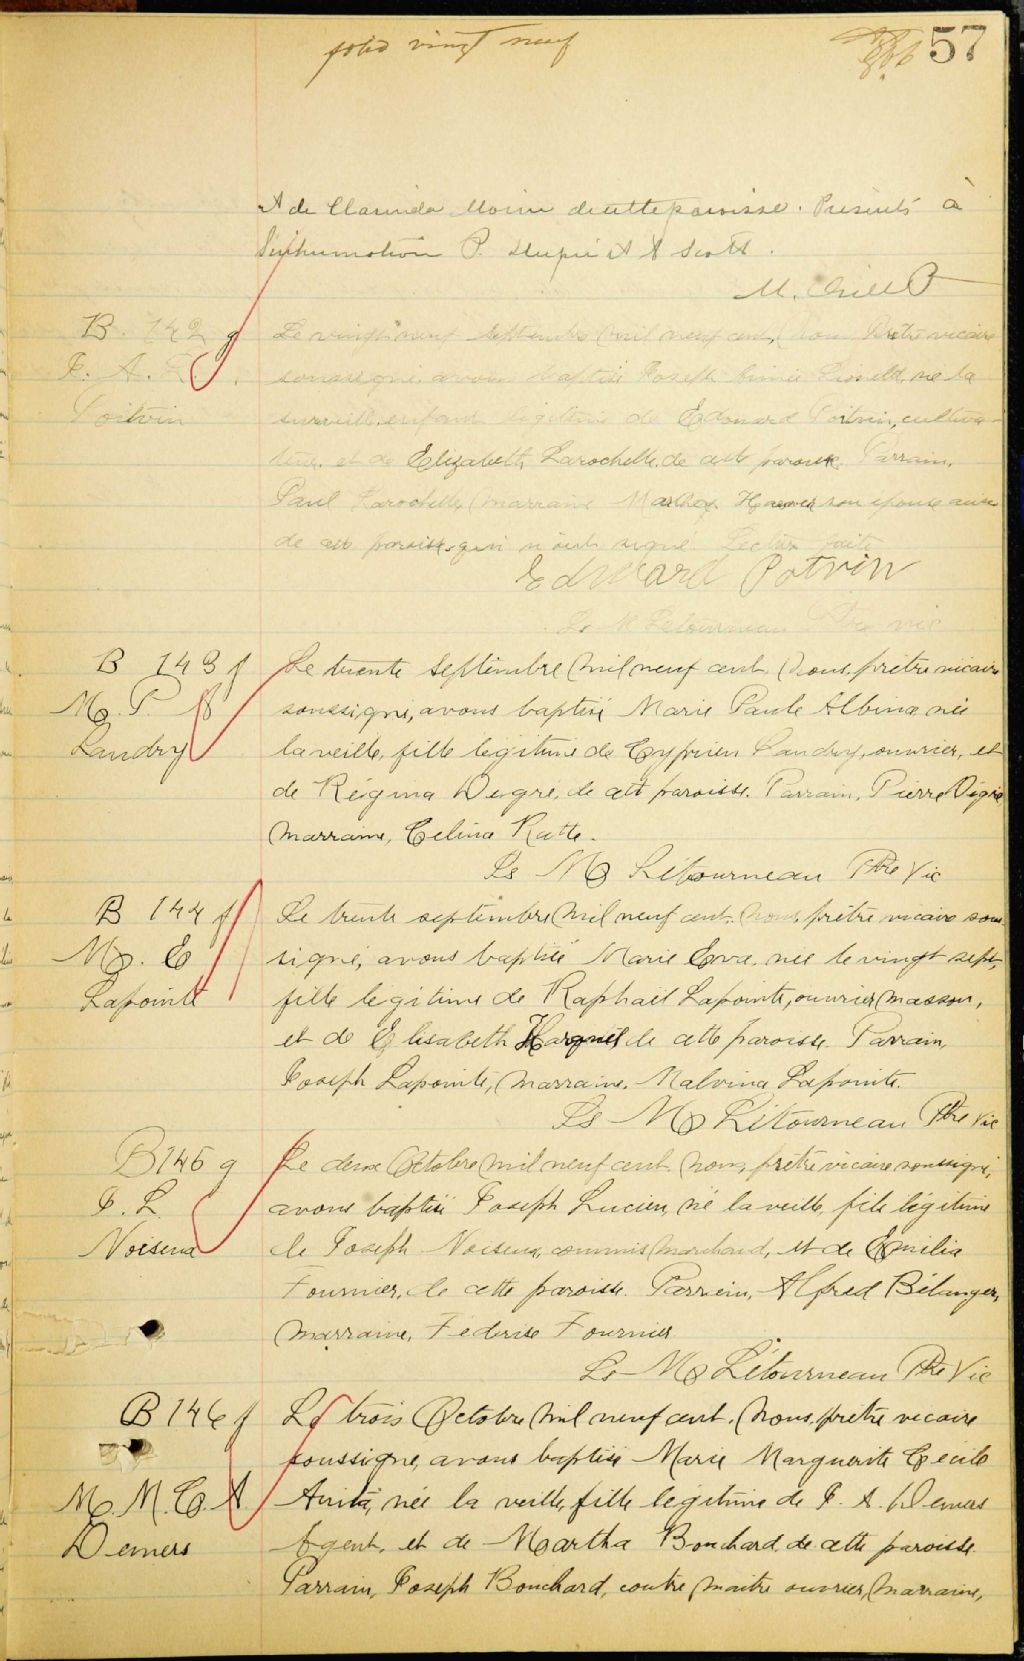 folio vingt neuf
57
et de Clarinda Morin de cette paroisse. Présents à
l'inhumation P. et A Scott.
M. P
B. 142 g
J. A.
Poitvin
Le vingt neuf septembre mil neuf cent, nous prêtre vicaire
soussigné, avons baptisé Joseph né la
surveille, enfant légitime de Edouard Poitvin, cultiva-
teur, et de Elizabeth Larochelle, de cette paroisse. Parrain,
Paul Larochelle, marraine son épouse aussi
de cette paroisse, qui n'ont signé. Lecture faite
Edward Potvin
Ls M Létourneau Ptre vic
B 143 f
M. P A
Landry
Le trente septembre mil neuf cent, nous, prêtre vicaire
soussigné, avons baptisé Marie Paule Albina, née
la veille, fille légitime de Cyprien Landry, ouvrier, et
de Régina Degré, de cette paroisse. Parrain, Pierre Dégré
marraine, Celina Ratte.
Ls M Létourneau Ptre Vic
B 144 f
M. E
Lapointe
Le trente septembre mil neuf cent, nous, prêtre vicaire sous-
signé, avons baptisé Marie Eva, née le vingt sept,
fille légitime de Raphaël Lapointe, ouvrier masson,
et de Elisabeth de cette paroisse. Parrain,
Joseph Lapointe, marraine, Malvina Lapointe.
Ls M Létourneau Ptre Vic
B 145 g
J. L.
Noiseux
Le deux Octobre mil neuf cent, nous, prêtre vicaire soussigné,
avons baptisé Joseph Lucien, né la veille, fils légitime
de Joseph Noiseux, commis marchand, et de Emilia
Fournier, de cette paroisse. Parrain, Alfred Bélanger,
marraine, Féderise Fournier
Ls M Létourneau Ptre Vic
B 146 f
M. M. C. A
Demers
Le trois Octobre mil neuf cent, nous, prêtre vicaire
soussigné, avons baptisé Marie Marguerite Cécile
Anita, née la veille, fille légitime de J. A. Demers
Agent, et de Martha Bouchard, de cette paroisse
Parrain, Joseph Bouchard, contre maitre ouvrier, marraine,